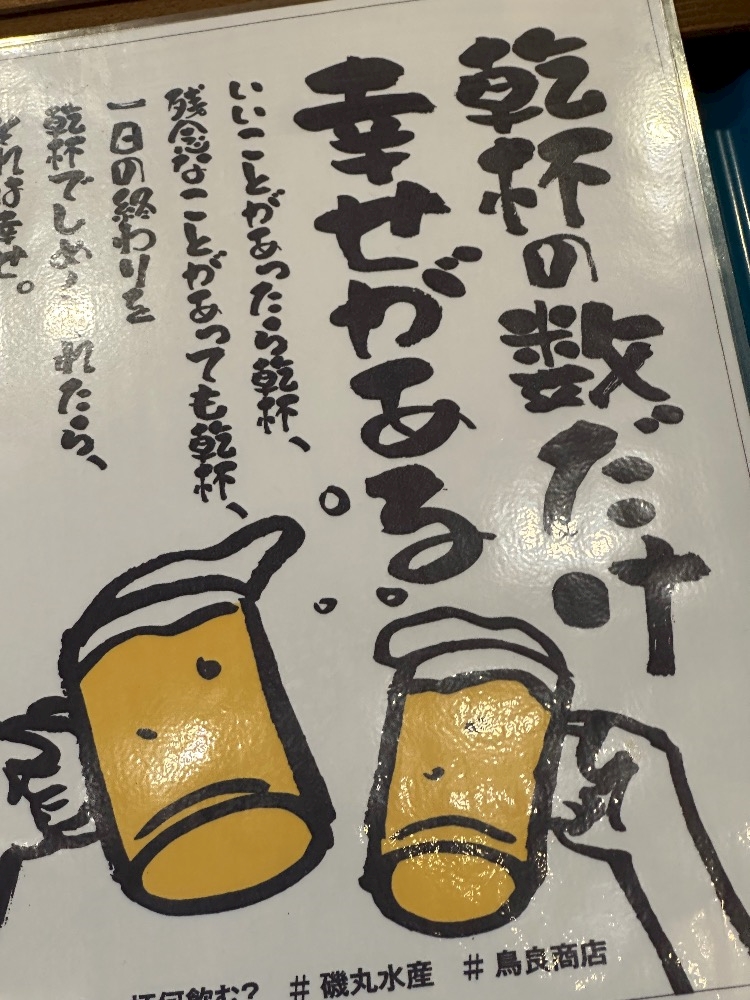 乾杯の数だけ
幸せがある
いいことがあったら乾杯、
残念なことがあっても乾杯、
一日の終わりを
乾杯でしめくくれたら、
それは幸せ。
杯何飲む? #磯丸水産 #鳥良商店